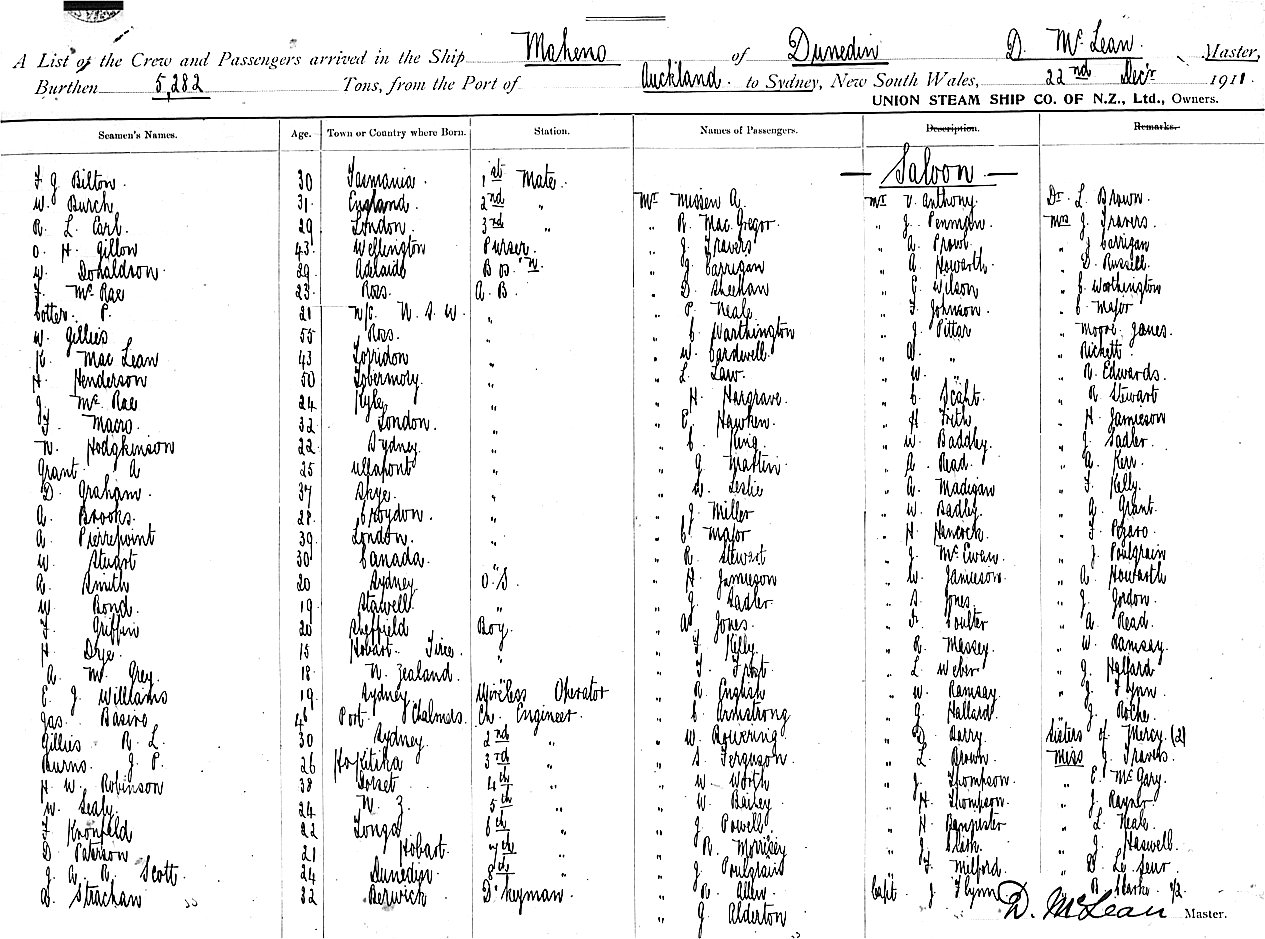 A List of the Crew and Passengers arrived in the Ship Maheno of Dunedin D. McLean. Master,
Burthen 5,282 Tons, from the Port of Auckland. to Sydney, New South Wales, 22nd Decr 1911.
UNION STEAM SHIP CO. OF N.Z., Ltd., Owners.
Seamen's Names. Age. Town or Country where Born. Station. Names of Passengers. Description. Remarks.
— Saloon —
F J Bilton. 30 Tasmania. 1st Mate. Mr Missen A. Mr V. Anthony Dr L. Brown.
W. Burch 31 England. 2nd " " R. Mac Gregor " J. Penman Mrs J. Travers
R. L. Earl. 29 London. 3rd " " J. Travers " A. Prowl " J Carrigan
O. H. Gillon 43 Wellington Purser. " J Carrigan " A. Howarth. " D. Russell.
W. Donaldson. 29 Adelaide Bos'n. " D. Sheehan " E Wilson " E Worthington
F. McRae 23 Ross. A. B. " P. Neale " F. Johnson. " C Major
Cotter. P. 21 N/C. N. S. W. " " C Worthington " J. Pittar " Moore Jones.
W. Gillies 55 Ross. " " W. Cardwell. " A. " " Rickett.
K. Mac Lean 43 Torridon " " L. Law. " W. " " R. Edwards.
H. Henderson 50 Tobermory. " " H. Hargrave. " C. " R Stewart
J. McRae 24 Kyle " " E. Hawken. " H Frith " H Jamieson
F. Macro. 32 London. " " C. King " W. Baddley. " J. Sadler.
N. Hodgkinson 22 Sydney " " J. Martin " A. Read. " A. Kerr.
Grant A 25 Ullapool " " L. Leslie " A. Madigan " F. Kelly.
D. Graham. 37 Skye. " " J. Miller " W. Badley. " A. Grant.
A. Brooks. 28 Croydon. " " C. Major " H. Hancock " F.
A. Pierrepoint 39 London. " " R. Stewart " J. McEwan. " J. Poulgrain
W. Stuart 30 Canada. " " H. Jamieson " W. Jamieson " A. Howarth
A. Smith 20 Sydney O. S. " J. Sadler " S. Jones. " J. Gordon.
W. Bond. 19 Stawell " " A Jones. " F. Coulter " A. Read.
F. Griffin 20 Sheffield Boy. " F Kelly. " R. Massey. " W. Ramsay.
H. Dye. 15 Hobart. " " F. Frost " L. Weber " J. Hallard
A. M. Grey. 18 N. Zealand. " " R. English " W. Ramsay " J. Flynn.
E. J Williams 19 Sydney Wireless Operator " C. Armstrong " J. Hallard " J. Roche.
Jas. Basire 46 Port Chalmers. Ch. Engineer. " W. Bowering " D. Barry Sisters of Mercy. (2)
Gillies R. L. 30 Sydney 2nd " " S. Ferguson " L. Brown. Miss J. Travers.
Burns. J. P. 26 Hokitika 3rd " " W. Worth " J. Thompson. " E. McGary.
H. W. Robinson 38 Dorset 4th " " W. Bailey " H Thompson. " J. Rayner
W. Sealy. 24 N. Z 5th " " J. Powell " H Bannister " L. Neale
F Kronfeld 22 Tonga 6th " " R. Morrisey " J. Clark. " J. Haswell.
D. Paterson 21 Hobart. 7th " " J. Poulgrain " F. Melford. " D. Le Seur
J. A. R. Scott 24 Dunedin 8th " " R. Allen Capt. J Flynn " B. Clarke 1/2
D. Strachan 32 Berwick D'keyman. " J. Alderton
D. McLean Master.